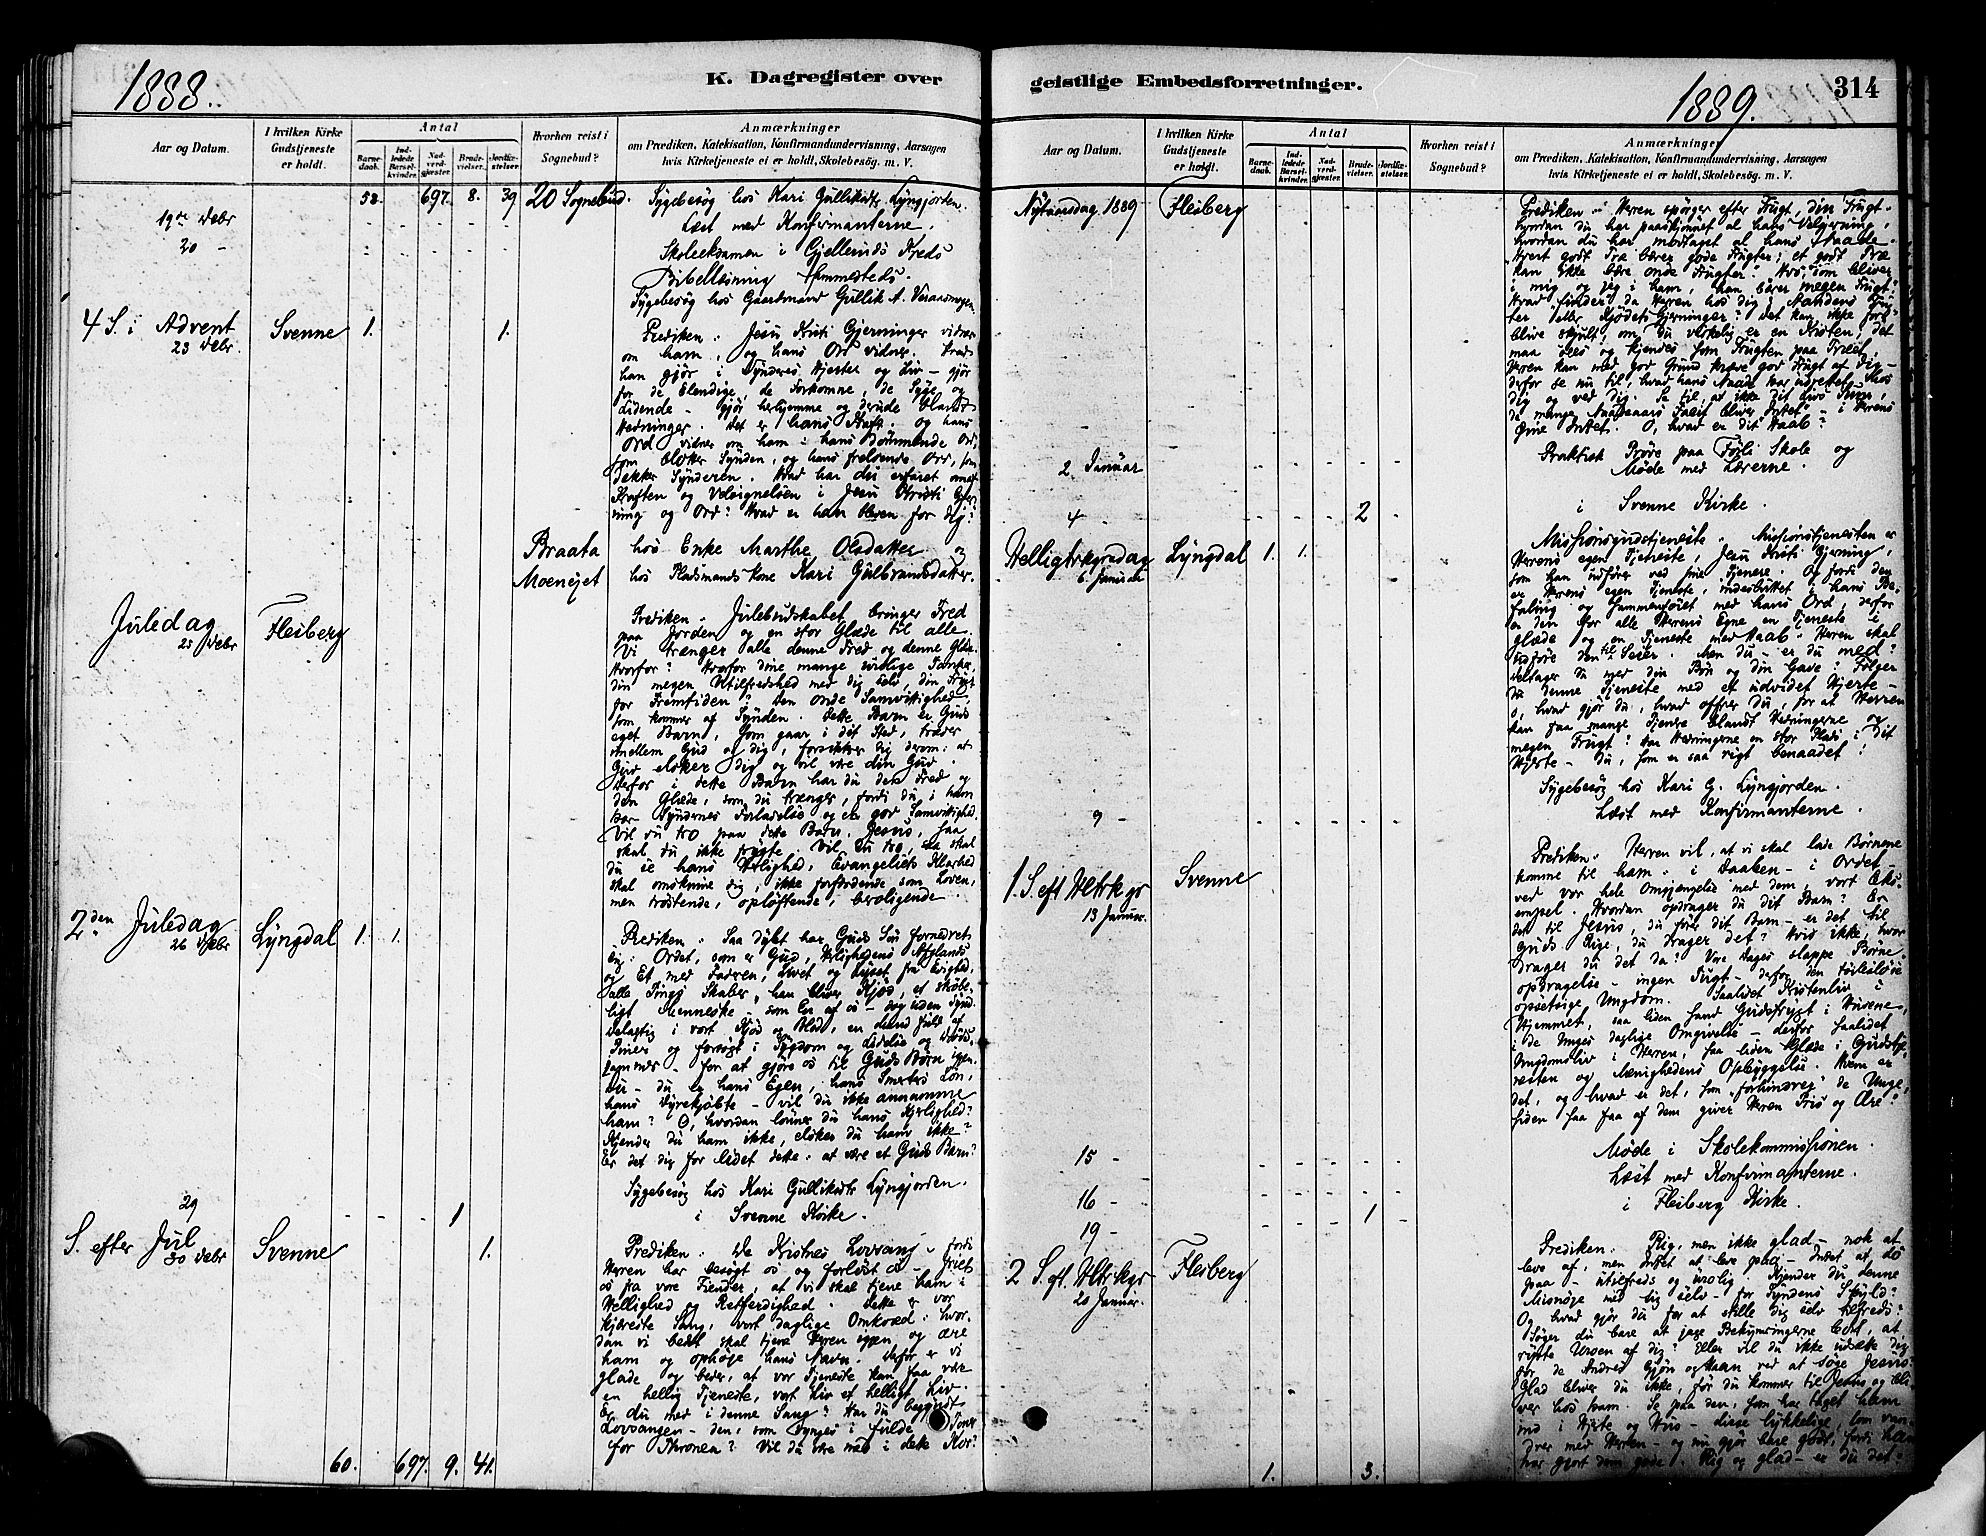 1888.
K. Dagregister over
Aar og Datum.
I hvilken Kirke Gudstjeneste er holdt.
Antal
Barnedaab.
Indledede Barselkvinder.
Nadverdgjæster.
Brudevielser.
Jordfæstelser.
Hvorhen reist i Sognebud?
Anmærkninger
om Prædiken, Katekisation, Konfirmandundervisning, Aarsagen
hvis Kirketjeneste ei er holdt, Skolebesøg. m. V.
58. 697. 8. 39 20 Sognebud. Sygebesøg hos Kari Gulliksdtr Lyngjorden.
19de Debr Læst med Konfirmanterne.
20 - Skoleeksamen i Gjellerud Kreds
Bibellæsning Hemmesteds.
Sygebesøg hos Gaardmand Gullik A.
4 S. i Advent Svenne 1. 1. Prediken: Jesu Kristi Gjerninger vidner
23 Debr. om ham, og hans Ord vidner. Hvad
han gjør i Synderes Hjerter og Liv - gjør
for de Elendige, de Forkomne, de Syge og
Lidende - gjør herhjemme og derude blandt
Hedninger. Det er hans Kraft. og hans
Ord vidner om ham i hans Dømmende Ord,
som Synden, og hans frelsende Ord, som
dækker Synderen. Hvad har du erfaret om
Kraften og Velsignelsen i Jesu Christi Gjer
ning og Ord? Hvad er han bleven for dig?
Braata hos Enke Marthe Olsdatter og
Moenejet hos Pladsmands Kone Kari Gulbrandsdatter.
Juledag Flesberg Prediken. Julebudskabet bringer Fred
25 Debr paa Jorden og en stor Glæde til alle.
Vi trænger alle denne Fred og denne Glæde.
Hvorfor? Hvorfor dine mange urolige Tanker,
din megen Utilfredshed med dig selv, din Frygt
for Fremtiden? Den onde Samvittighed,
som kommer af Synden. Dette Barn er Guds
eget Barn, som gaar i dit Sted, træder
mellem Gud og dig, forsikkrer dig derom: at
Gud elsker dig og vil være din Gud.
Derfor i dette Barn har du den Fred og
den Glæde, som du trænger, fordi du i ham
har Syndernes Forladelse og en god Samvittighed.
Vil du tro paa dette Barn, Jesus, saa
skal du ikke frygte. Vil du tro, saa skal
du se hans Herlighed, Evangeliets Klarhed
skal omskinne dig, ikke forfærdende som Loven,
men trøstende, opløftende, beroligende.
2den Juledag Lyngdal 1. 1. Prediken: Saa dybt har Guds Søn fornedret
26 Debr sig: Ordet, som er Gud, Herlighedens
og Et med Faderen, Livet og Lyset fra Evighed,
alle Tings Skaber, han bliver Kjød, et skrøbe-
ligt Menneske - som En af os - dog uden Synd
delagtig i vort Kjød og Blod, en Mand fuld af
Piner og forsøgt i Sygdom og Lidelse og
- for at gjøre os til Guds Børn igjen.
du er hans Egen, hans Smertes Løn,
hans Dyrekjøbte - vil du ikke annamme
ham? O, hvordan lønner du hans Kjerlighed?
Kjender du ham ikke, elsker du ham ikke?
Er det dig for lidet dette: at være et Guds Barn?
Sygebesøg hos Kari Gulliksdtr Lyngjorden.
29 - - - 1 i Svenne Kirke.
S. efter Jul Svenne 1. Prediken: De Kristnes Lovsang - fordi
30 Debr Herren har besøgt os og forløst os - friet
os fra vore Fiender, at vi skal tjene ham i
Hellighed og Retferdighed. Dette er vor
Sang, vort daglige Omkvæd: hvor
dan vi bedst skal tjene Herren igjen, og ære
ham og ophøje hans Navn. Derfor er vi
glade og beder, at vor Tjeneste kan faa være
en hellig Tjeneste, vort Liv et helligt Liv.
Er du med i denne Sang? Har du begyndt
Lovsangen - den, som synges i fulde Toner
for Thronen? Vil du være med i dette Kor?
60. 697. 9. 41.
geistlige Embedsforretninger.
1889.
314
Aar og Datum.
I hvilken Kirke Gudstjeneste er holdt.
Antal
Barnedaab.
Indledede Barselkvinder.
Nadverdgjæster.
Brudevielser.
Jordfæstelser.
Hvorhen reist i Sognebud?
Anmærkninger
om Prædiken, Katekisation, Konfirmandundervisning, Aarsagen
hvis Kirketjeneste ei er holdt, Skolebesøg. m. V.
Nytaarsdag 1889 Flesberg Prediken: Herren spørger efter Frugt, din Frugt.
hvordan du har paaskjønnet al hans Velgjerning,
hvordan du har modtaget al hans Naade.
Hvert godt Træ bærer gode Frugter; et godt Træ
kan ikke bære onde Frugter. Hvo, som bliver
i mig og jeg i ham, han bærer megen Frugt.
Hvad finder da Herren hos dig, Aandens Frug
ter eller Kjødets Gjerninger? Det kan ikke for
blive skjult, om du virkelig er en Kristen, det
maa sees og kjendes som Frugten paa Træet.
Herren kan med god Grund kræve god Frugt af dig -
derfor se nu til, hvad hans Naade har udrettet hos
dig og ved dig. Se til, at ikke dit Livs Sum,
de mange Naadeaars Facit bliver Intet - i Herrens
Øine Intet. O, hvad er dit Haab?
2 Januar Praktisk Prøve paa Førli Skole og
Møde med Lærerne.
4 - - - - 2 - i Svenne Kirke.
Helligtrekgrsdag Lyngdal 1. 1. Missionsgudstjeneste. Missionstjenesten er
6 Januar Herrens egen Tjeneste, Jesu Kristi Gjerning,
som han udfører ved sine Tjenere. Og fordi den
er Herrens egen Tjeneste, indesluttet i hans Be
faling og sammenføiet med hans Ord, derfor
er den for alle Herrens Egne en Tjeneste i
glæde og en Tjeneste med Haab. Herren skal
udføre den til Seier. Men du - er du med?
Deltager du med din Bøn og din Gave? Følger
du denne Tjeneste med et udvidet Hjerte -
O, hvad gjør du, hvad offrer du, for at Herren
kan faa mange Tjenere blandt Hedningerne og
megen Frugt? Har Hedningerne en stor Plads i dit
Hjerte - du, som er saa rigt benaadet!
Sygebesøg hos Kari G. Lyngjorden.
9 - Læst med Konfirmanterne.
1 S. eft Hltrkgr Svenne Prediken: Herren vil, at vi skal lade Børnene
13 Januar. komme til ham: i Daaben - i Ordet -
ved vor hele Omgjængelse med dem, vort Eks-
empel. Hvordan opdrager du dit Barn? Er
det til Jesus, du fører dit Barn - er det til
Guds Rige, du drager det? Hvis ikke, hvor
drager du det da? Vore Dages slappe Børne
opdragelse - ingen Tugt - derfor den
opsetsige Ungdom. Saalidet Kristenliv i
Hjemmet, saa liden sand Gudsfrygt i Husene,
i de Unges daglige Omgivelse - derfor saalidet
Ungdomsliv i Herren, saa liden Glæde i Gudstje
nesten og Menighedens Opbyggelse. Hvem er
det, og hvad er det, som "forhindrer" de Unge,
siden saa faa af dem giver Herren Pris og Ære?
15 - Møde i Skolekommissionen.
16 - Læst med Konfirmanterne.
19 - 1 - i Flesberg Kirke.
2 S. eft. Hltrkgr Flesberg Prediken: Rig, men ikke glad - nok at
20 Januar. leve af, men Intet at leve paa - Intet at dø
paa - utilfreds og urolig. Kjender du denne
Misnøje med dig selv - for Syndens Skyld?
Og hvad gjør du for at stille dig selv tilfreds?
Søger du bare at jage Bekymringerne bort, at
ryste Uroen af dig? Eller vil du ikke
ved at søge Jesus?
Glad bliver du ikke, før du kommer til Jesus og bli
ver hos ham. Se paa dem, som har taget ham
ind i Hjerte og Hus - disse lykkelige, som van-
drer med Herren - og nu gjør bare godt, fordi han
har gjort dem gode. Rig og glad - er du det?
1. 3.